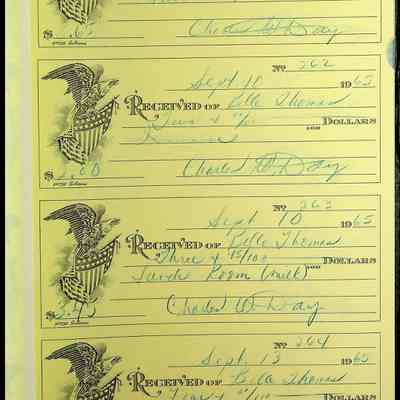 $
Charles W. Day
No 262
Sept 10 1963
RECEIVED OF Belle Thomas
100 DOLLARS
$2.00 Charles W. Day
No 263
Sept 10 1963
RECEIVED OF Belle Thomas
Three & 45/100 DOLLARS
Lunch Room (milk)
$3.45 Charles W. Day
No 264
Sept 13 1963
RECEIVED OF Belle Thomas
DOLLARS